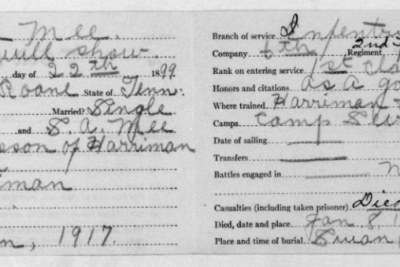 Mee.
will show.
day of 22nd 1899
Roane State of Tenn.
Married? Single
and S. a. Mee
sson of Harriman
iman
n, 1917.
Branch of service
Company 6th Regiment
Rank on entering service 1st Cla
Honors and citations as a go
Where trained Harriman
Camps Camp Sevi
Date of sailing
Transfers
Battles engaged in
Casualties (including taken prisoner) Died
Died, date and place Jan. 8, 1
Place and time of burial Swan